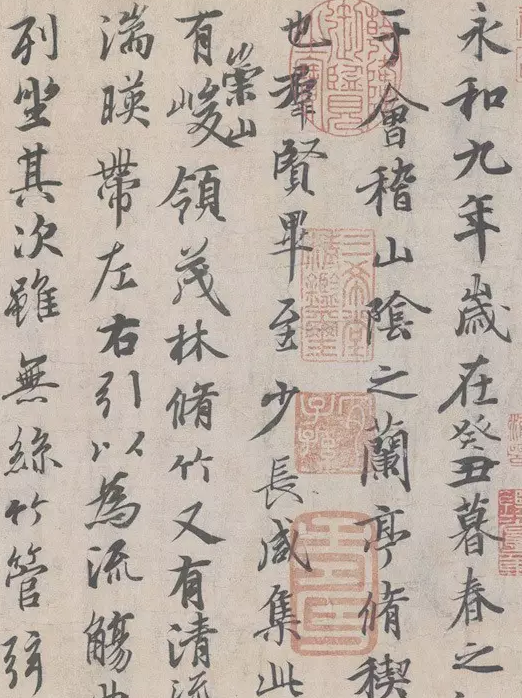 永和九年歲在癸丑暮春之
于會稽山陰之蘭亭脩稧
也羣賢畢至少長咸集此
有崇山峻領茂林脩竹又有清流
湍暎帶左右引以為流觴曲
列坐其次雖無絲竹管弦
三希堂精鑑璽
宜子孫